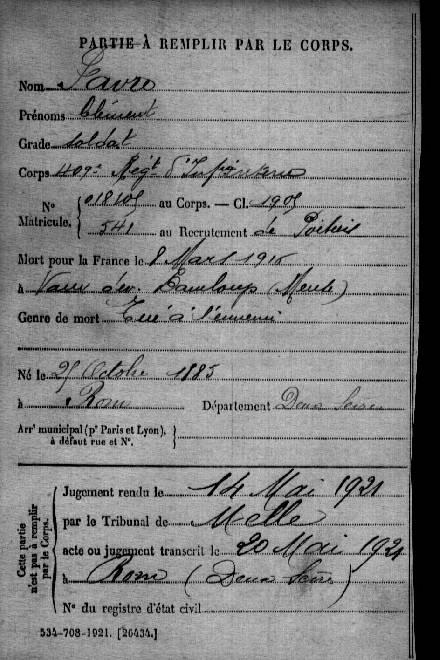 PARTIE À REMPLIR PAR LE CORPS.
Nom Favro
Prénoms Clément
Grade soldat
Corps 409e Régt d'Infanterie
N° Matricule. 018105 au Corps. — Cl. 1905
541 au Recrutement de Poitiers
Mort pour la France le 8 Mars 1916
à Vaux dev. Damloup (Meuse)
Genre de mort Tué à l'ennemi
Né le 25 Octobre 1885
à Rom Département Deux Sèvres
Arrt municipal (pr Paris et Lyon), à défaut rue et N°.
Cette partie n'est pas à remplir par le Corps.
Jugement rendu le 14 Mai 1921
par le Tribunal de Melle
acte ou jugement transcrit le 20 Mai 1921
à Rom (Deux Sèvres)
N° du registre d'état civil
534-708-1921. [26434.]